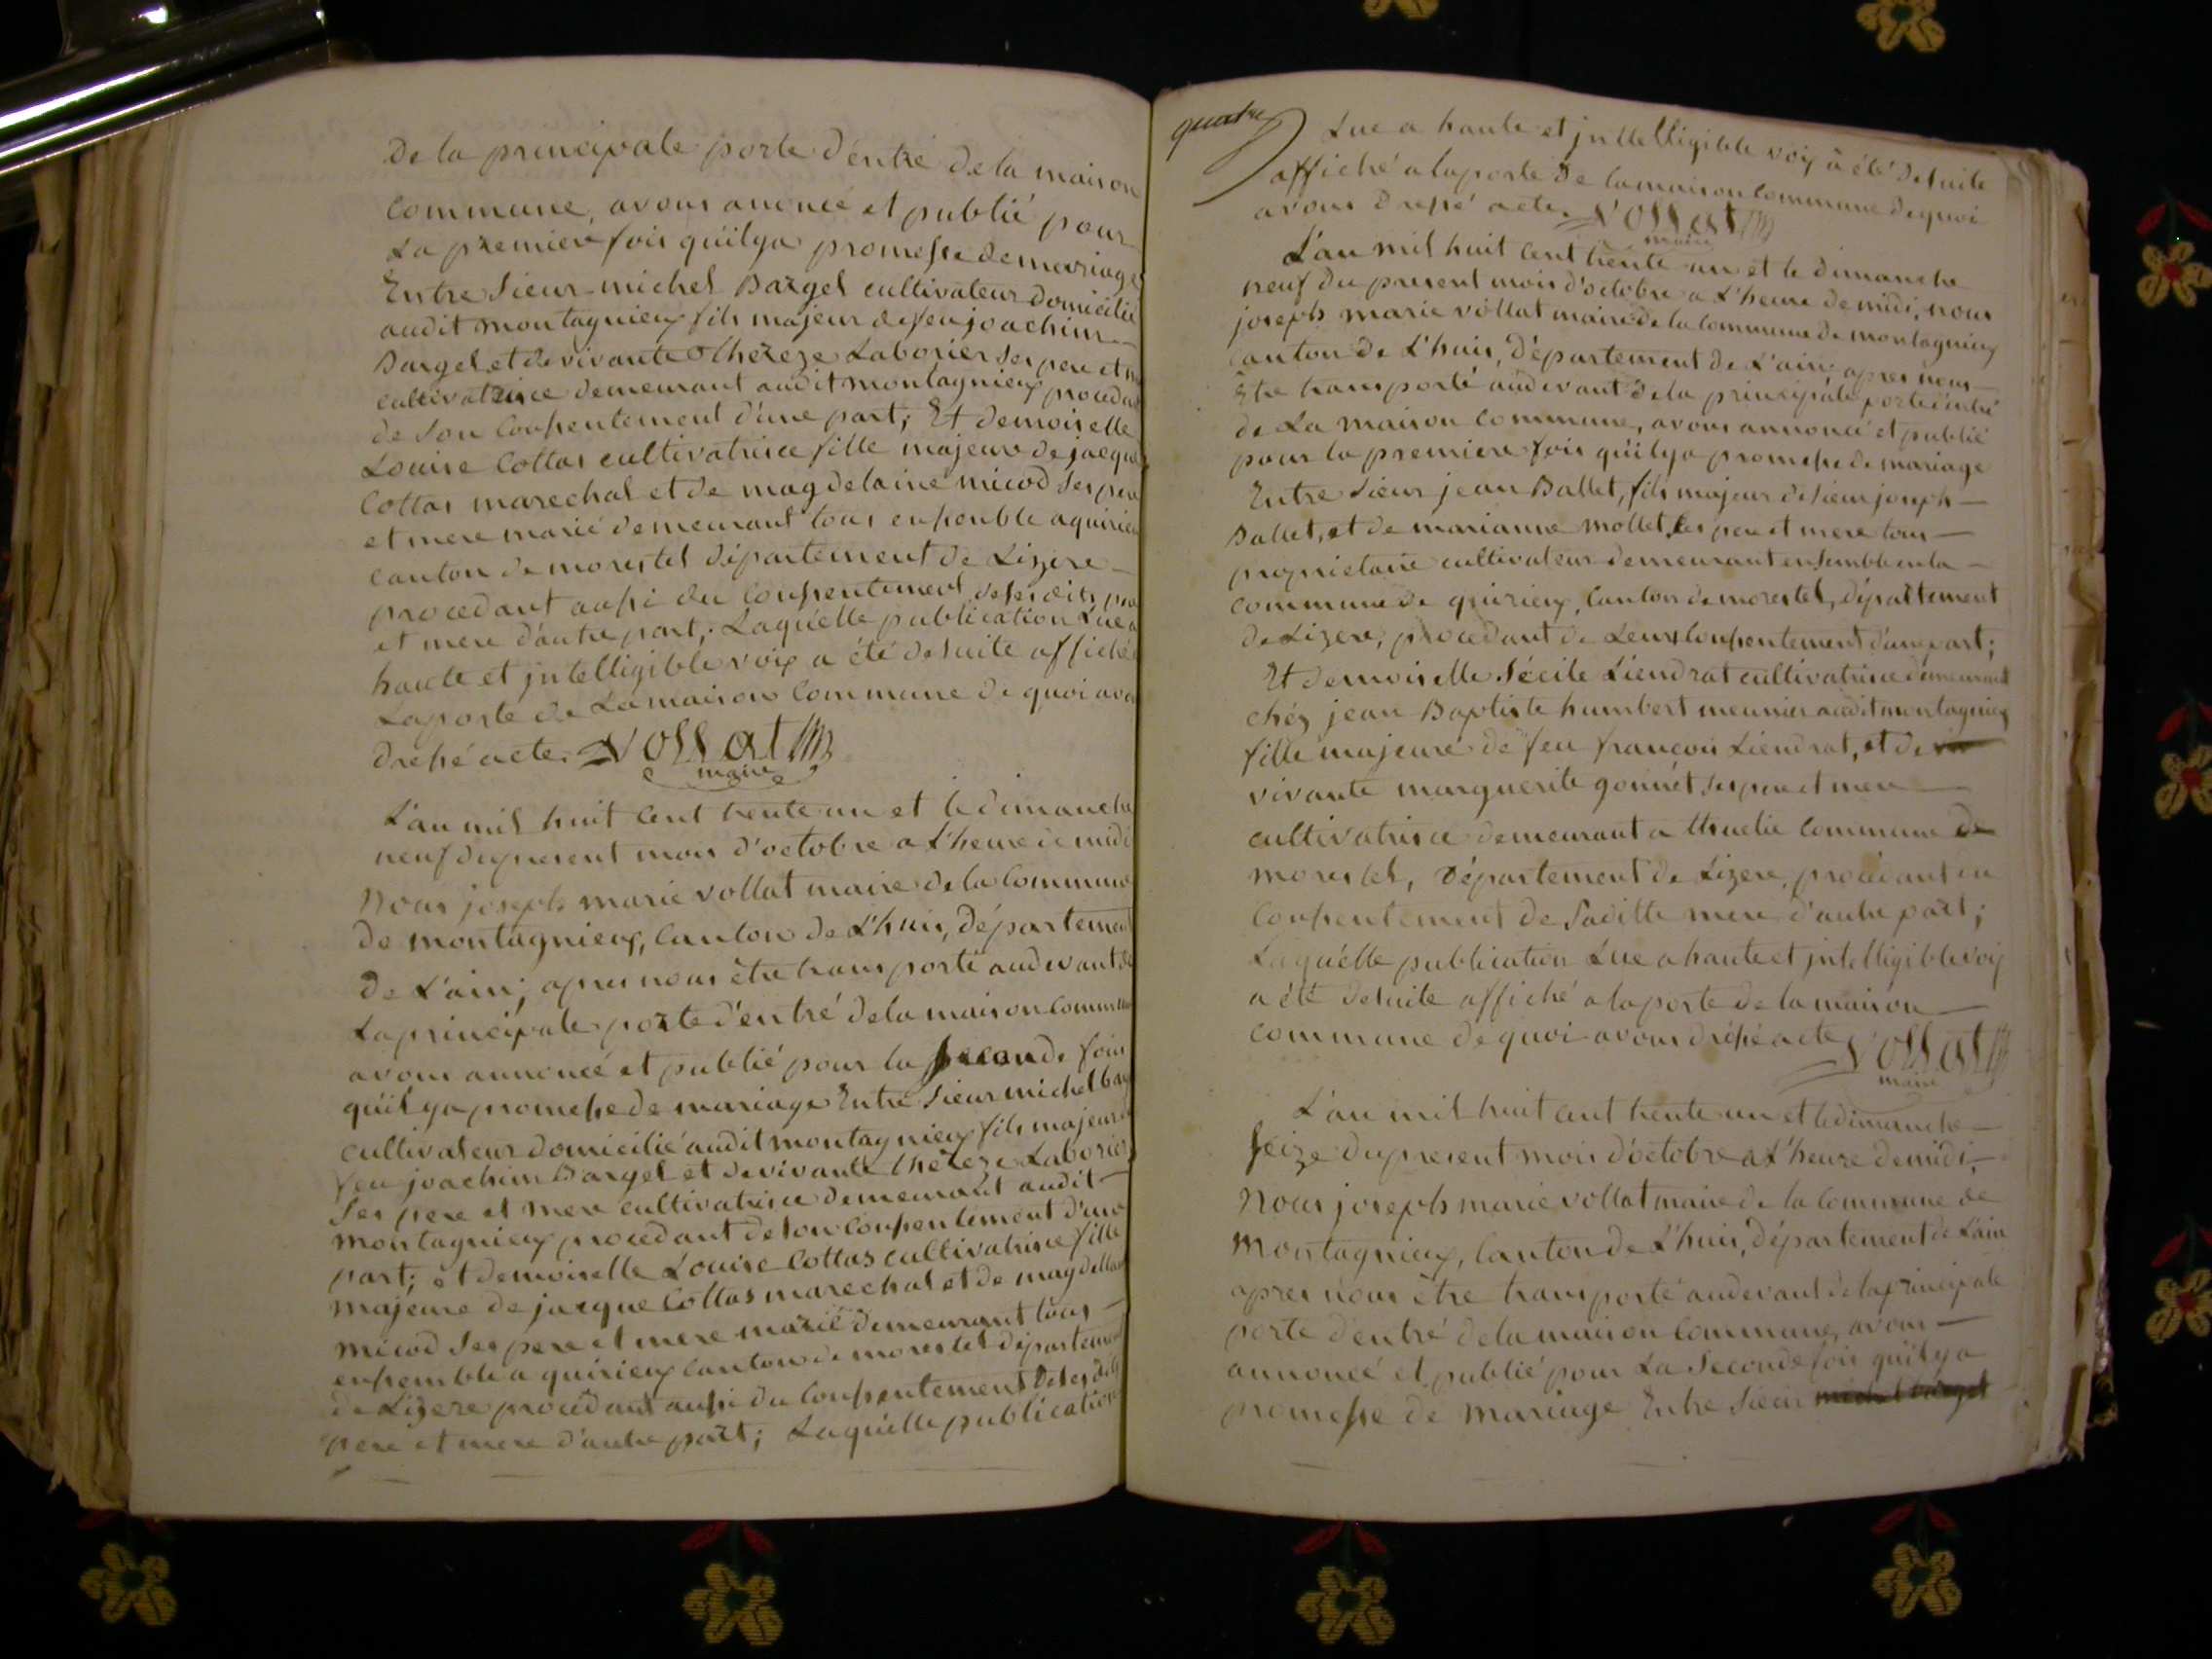 De la principale porte d'entré de la maison
commune, avons anoncé et publié pour
La premiere fois qu'il ya promesse de mariage
Entre Sieur michel Bargel cultivateur domicilié
audit montagnieux fils majeur de feu joachim
Bargel et de vivante Thereze Laborier ses pere et
cultivatrice demeurant audit montagnieux procedant
de son consentement d'une part; Et demoiselle
Louise Cottas cultivatrice fille majeure de jacque
Cottas marechal et de magdelaine micod ses pere
et mere marié demeurant tous ensemble a quirieu
canton de morestel département de Lizere
procedant aussi du consentement de ses dits pere
et mere d'autre part; Laquelle publication Lue a
haute et jntelligible voix a été desuite affiché
La porte de La maison Commune de quoi avons
dressé acte. Vollat
maire
L'an mil huit cent trente un et le dimanche
neuf du present mois d'octobre a L'heure de midi
Nous joseph marie vollat maire de la Commune
de montagnieux, Canton de L'huis, département
de L'ain; apres nous être transporté au devant de
La principale porte d'entré de la maison commune
avons annoncé et publié pour la seconde fois
qu'il ya promesse de mariage Entre Sieur michel bargel
cultivateur domicilié audit montagnieux fils majeur
feu joachim Bargel et de vivante thereze Laborier
Ses pere et mere cultivatrice demeurant audit
montagnieux procedant de son consentement d'une
part; et demoiselle Louise Cottas cultivatrise fille
majeure de jacque Cottas marechal et de magdellaine
micod Ses pere et mere marié demeurant tous
ensemble a quirieux canton de morestel département
de Lizere procedant aussi du Consentement de ses dits
pere et mere d'autre part; Laquelle publication
quatre
Lue a haute et jntelligible voix a été desuite
affiché a la porte de la maison commune de quoi
avons dressé acte. Vollat
maire
L'an mil huit cent trente un et le dimanche
neuf du present mois d'octobre a L'heure de midi, nous
joseph marie vollat maire de la commune de montagnieux
Canton de L'huis, département de L'ain apres nous
Etre transporté au devant de la principale porte d'entré
de La maison commune, avons annoncé et publié
pour la premiere fois qu'il ya promesse de mariage
Entre Sieur jean Ballet, fils majeur de sieur joseph
Ballet, et de marianne mollet, ses pere et mere tous
propriétaire cultivateur demeurant ensemble en la
commune de quirieux, Canton de morestel, département
de Lizere, procedant de Leurs consentement d'une part;
Et demoiselle Sécile Liendrat cultivatrice demeurant
chéz jean Baptiste humbert meunier audit montagnieux
fille majeure de feu francois Liendrat, et de
vivante marguerite gonnet ses pere et mere
cultivatrice demeurant a commune de
morestel, Département de Lizere, procedant du
Consentement de Saditte mere d'autre part;
Laquelle publication Lue a haute et jntelligible voix
a été desuite affiché a la porte de la maison
commune de quoi avons dressé acte Vollat
maire
L'an mil huit cent trente un et le dimanche
seize du present mois d'octobre a L'heure de midi,
Nous joseph marie vollat maire de la commune de
Montagnieux, Canton de L'huis, département de L'ain
apres nous être transporté au devant de la principale
porte d'entré de la maison Commune, avons
annoncé et publié pour La Seconde fois qu'il ya
promesse de mariage Entre Sieur michel bargel